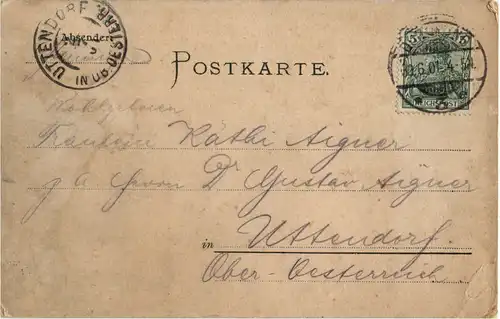 UTTENDORF
IN OB. OESTERR.
Absender:
POSTKARTE.
5 5
22.6.01.4-5N.
REICHSPOST
Wohlgeboren
Fräulein Käthi Aigner
p A Herrn Dr Gustav Aigner
in Uttendorf.
Ober-Oesterreich.